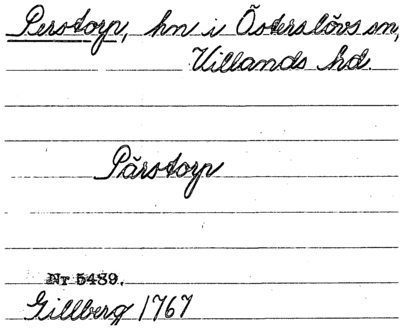 Perstorp, hn i Österslövs sn,
Villands hd.
Pärstorp
Nr 5489.
Gillberg 1767